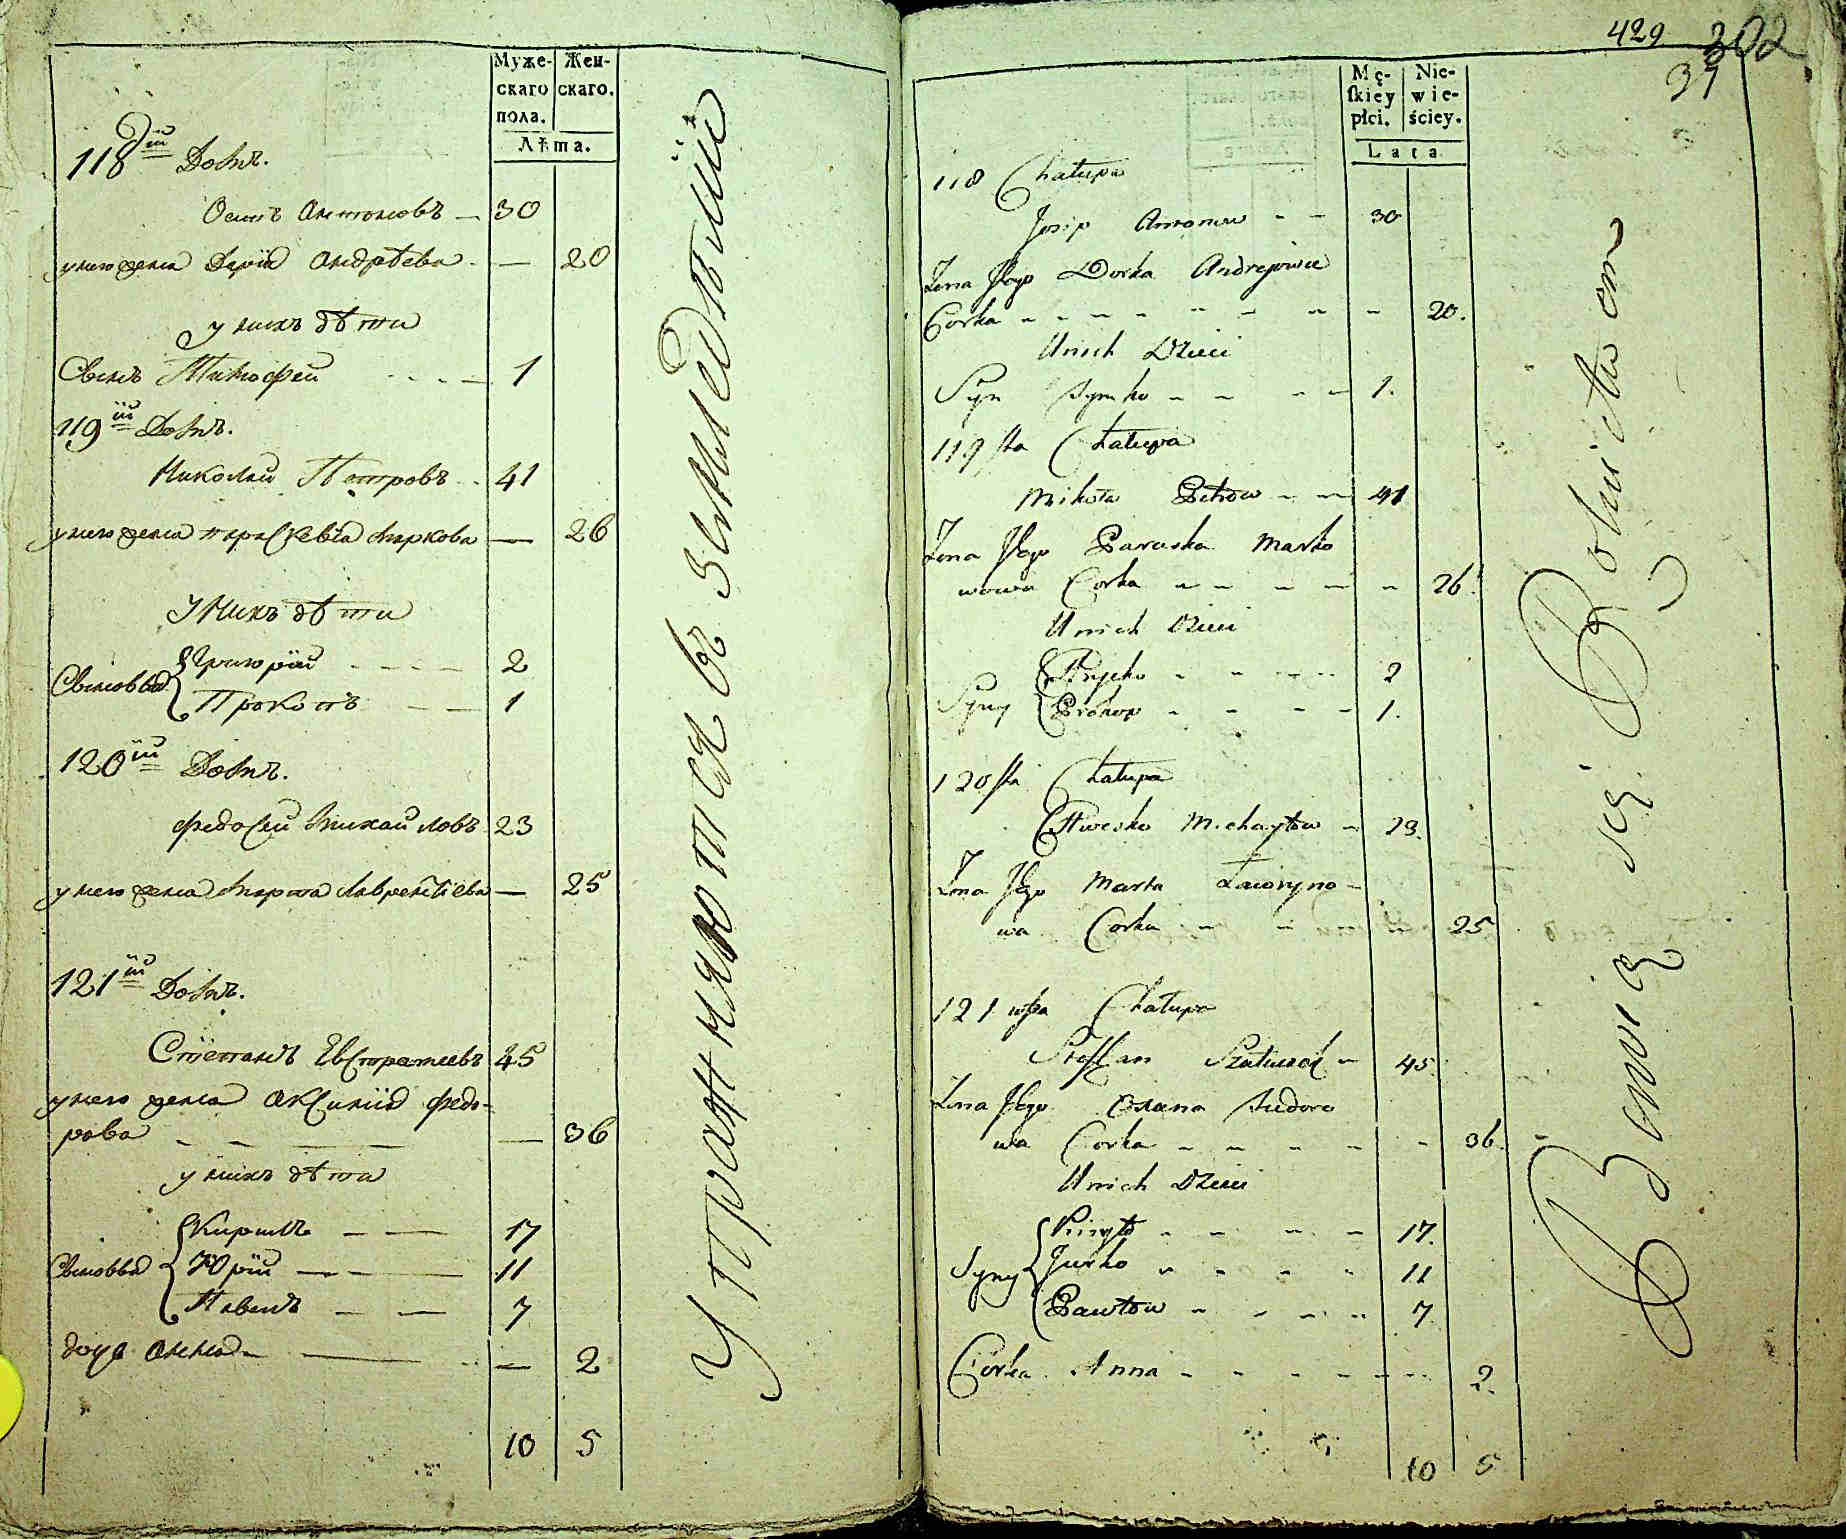 Муже- Жен-
скаго скаго.
пола.
Лѣта.
118й Домъ.
Осипъ Антоновъ — 30
у него жена Дарія Андрѣева — 20
у нихъ дѣти
Сынъ Тимофей - - - 1
119й Домъ.
Николай Петровъ - 41
у него жена Параскевіа Маркова — 26
У Нихъ дѣти
Сыновья Григорій - - - - 2
Прокопъ - - 1
120й Домъ.
Федосий Михайловъ 23
у него жена Марта Лаврентіева — 25
121й Домъ.
Степанъ Евстратиевъ 45
у него жена Аксиния Федо-
рова - - — — 36
у нихъ дѣти
Сыновья Кирилъ — — 17
Юрій — — 11
Павелъ — — 7
дочь Анна — — 2
10 5
Упражняются въ земледѣлии
429 302
31
Mę- Nie-
ſkiey wie-
płci. ściey.
Lata
118 Chałupa
Josip Antonow - - 30
Żona Jego Dorka Andrejowa
Corka - - - - - - - - 20.
Unich Dzieci
Syn Tymko - - - - 1.
119 sta Chałupa
Mikoła Petrow - - 41
Żona Jego Paraska Marko
wowa Corka - - - - - - 26.
Unich Dzieci
Syny Hryćko - - - - 2
Prokop - - - - 1.
120 sta Chałupa
Chwesko Michayłow - 23.
Żona Jego Marta Ławryno-
wa Corka - - - - - 25
121 wsza Chałupa
Steffan - 45
Żona Jego Oxana Fudoro
wa Corka - - - - - - 36.
Unich Dzieci
Syny Kiryło - - - - - 17.
Jurko - - - - - 11
Pawłow - - - - - 7
Corka Anna - - - - - - - 2.
10 5
Bawią się Rolnictwem